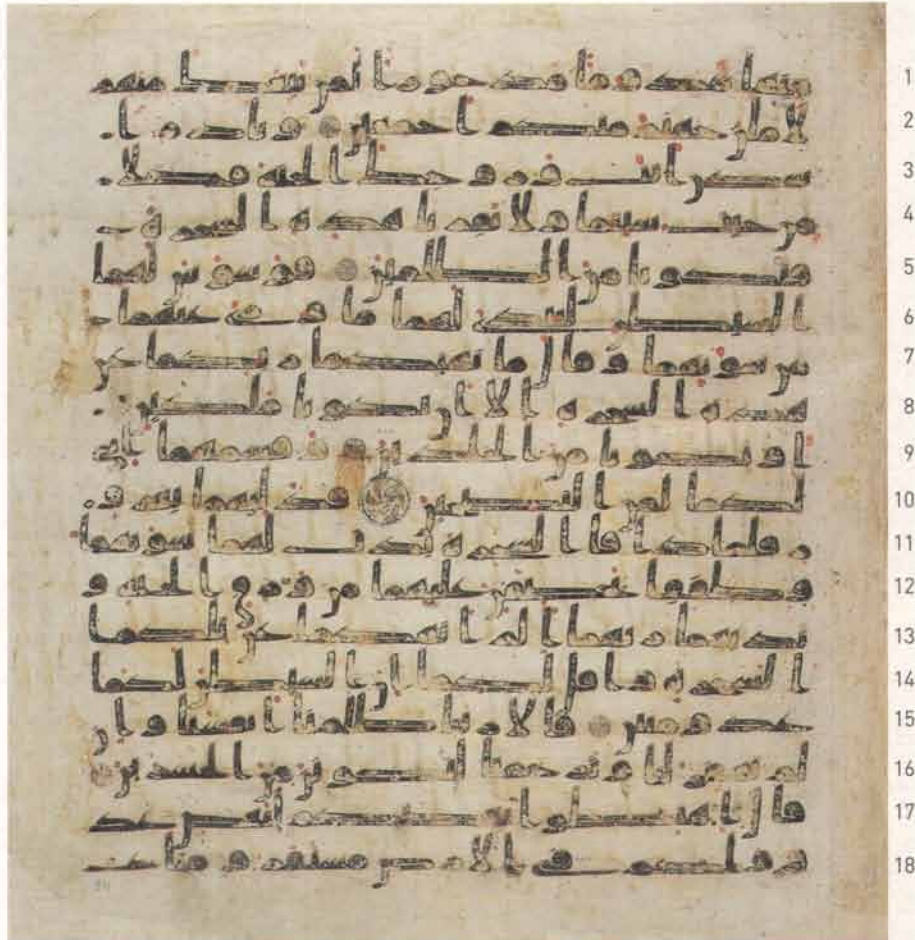 منها مذوما مدحورا لمن تبعك منهم 1
لاملن جهنم منكم اجمعين ويادم ا 2
سكن انت وزوجك الجنة فكلا 3
من حيث شيتما ولا تقربا هذه الشجرة فـ 4
تكونا من الظلمين فوسوس لهما 5
الشيطن ليبدي لهما ما وري عنهما 6
من سوتهما وقال ما نهيكما ربكما عن 7
هذه الشجرة الا ان تكونا ملكين 8
او تكونا من الخلدين وقسمهما اني 9
لكما لمن النصحين فدليهما بغرو 10
ر فلما ذاقا الشجرة بدت لهما سوتهما 11
وطفقا يخصفن عليهما من ورق الجنة و 12
ناديهما ربهما الم انهكما عن تلكما 13
الشجرة واقل لكما ان الشيطن لكما 14
عدو مبين قالا ربنا ظلمنا انفسنا وان 15
لم تغفر لنا وترحمنا لنكونن من الخسرين 16
قال اهبطوا بعضكم لبعض عد 17
و ولكم في الارض مستقر ومتع 18